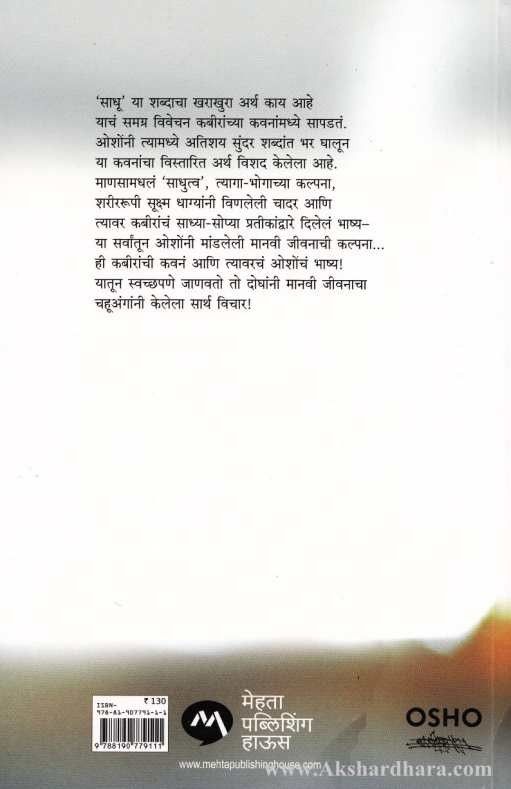 'साधू' या शब्दाचा खराखुरा अर्थ काय आहे
याचं समग्र विवेचन कबीरांच्या कवनांमध्ये सापडतं.
ओशोंनी त्यामध्ये अतिशय सुंदर शब्दांत भर घालून
या कवनांचा विस्तारित अर्थ विशद केलेला आहे.
माणसामधलं 'साधुत्व', त्यागा-भोगाच्या कल्पना,
शरीररूपी सूक्ष्म धाग्यांनी विणलेली चादर आणि
त्यावर कबीरांचं साध्या-सोप्या प्रतीकांद्वारे दिलेलं भाष्य–
या सर्वांतून ओशोंनी मांडलेली मानवी जीवनाची कल्पना...
ही कबीरांची कवनं आणि त्यावरचं ओशोंचं भाष्य!
यातून स्वच्छपणे जाणवतो तो दोघांनी मानवी जीवनाचा
चहूअंगांनी केलेला सार्थ विचार!
₹ 130
ISBN-
978-81-907791-1-1
9 788190 779111
मेहता
पब्लिशिंग
हाऊस
www.mehtapublishinghouse.com
OSHO
www.Akshardhara.com